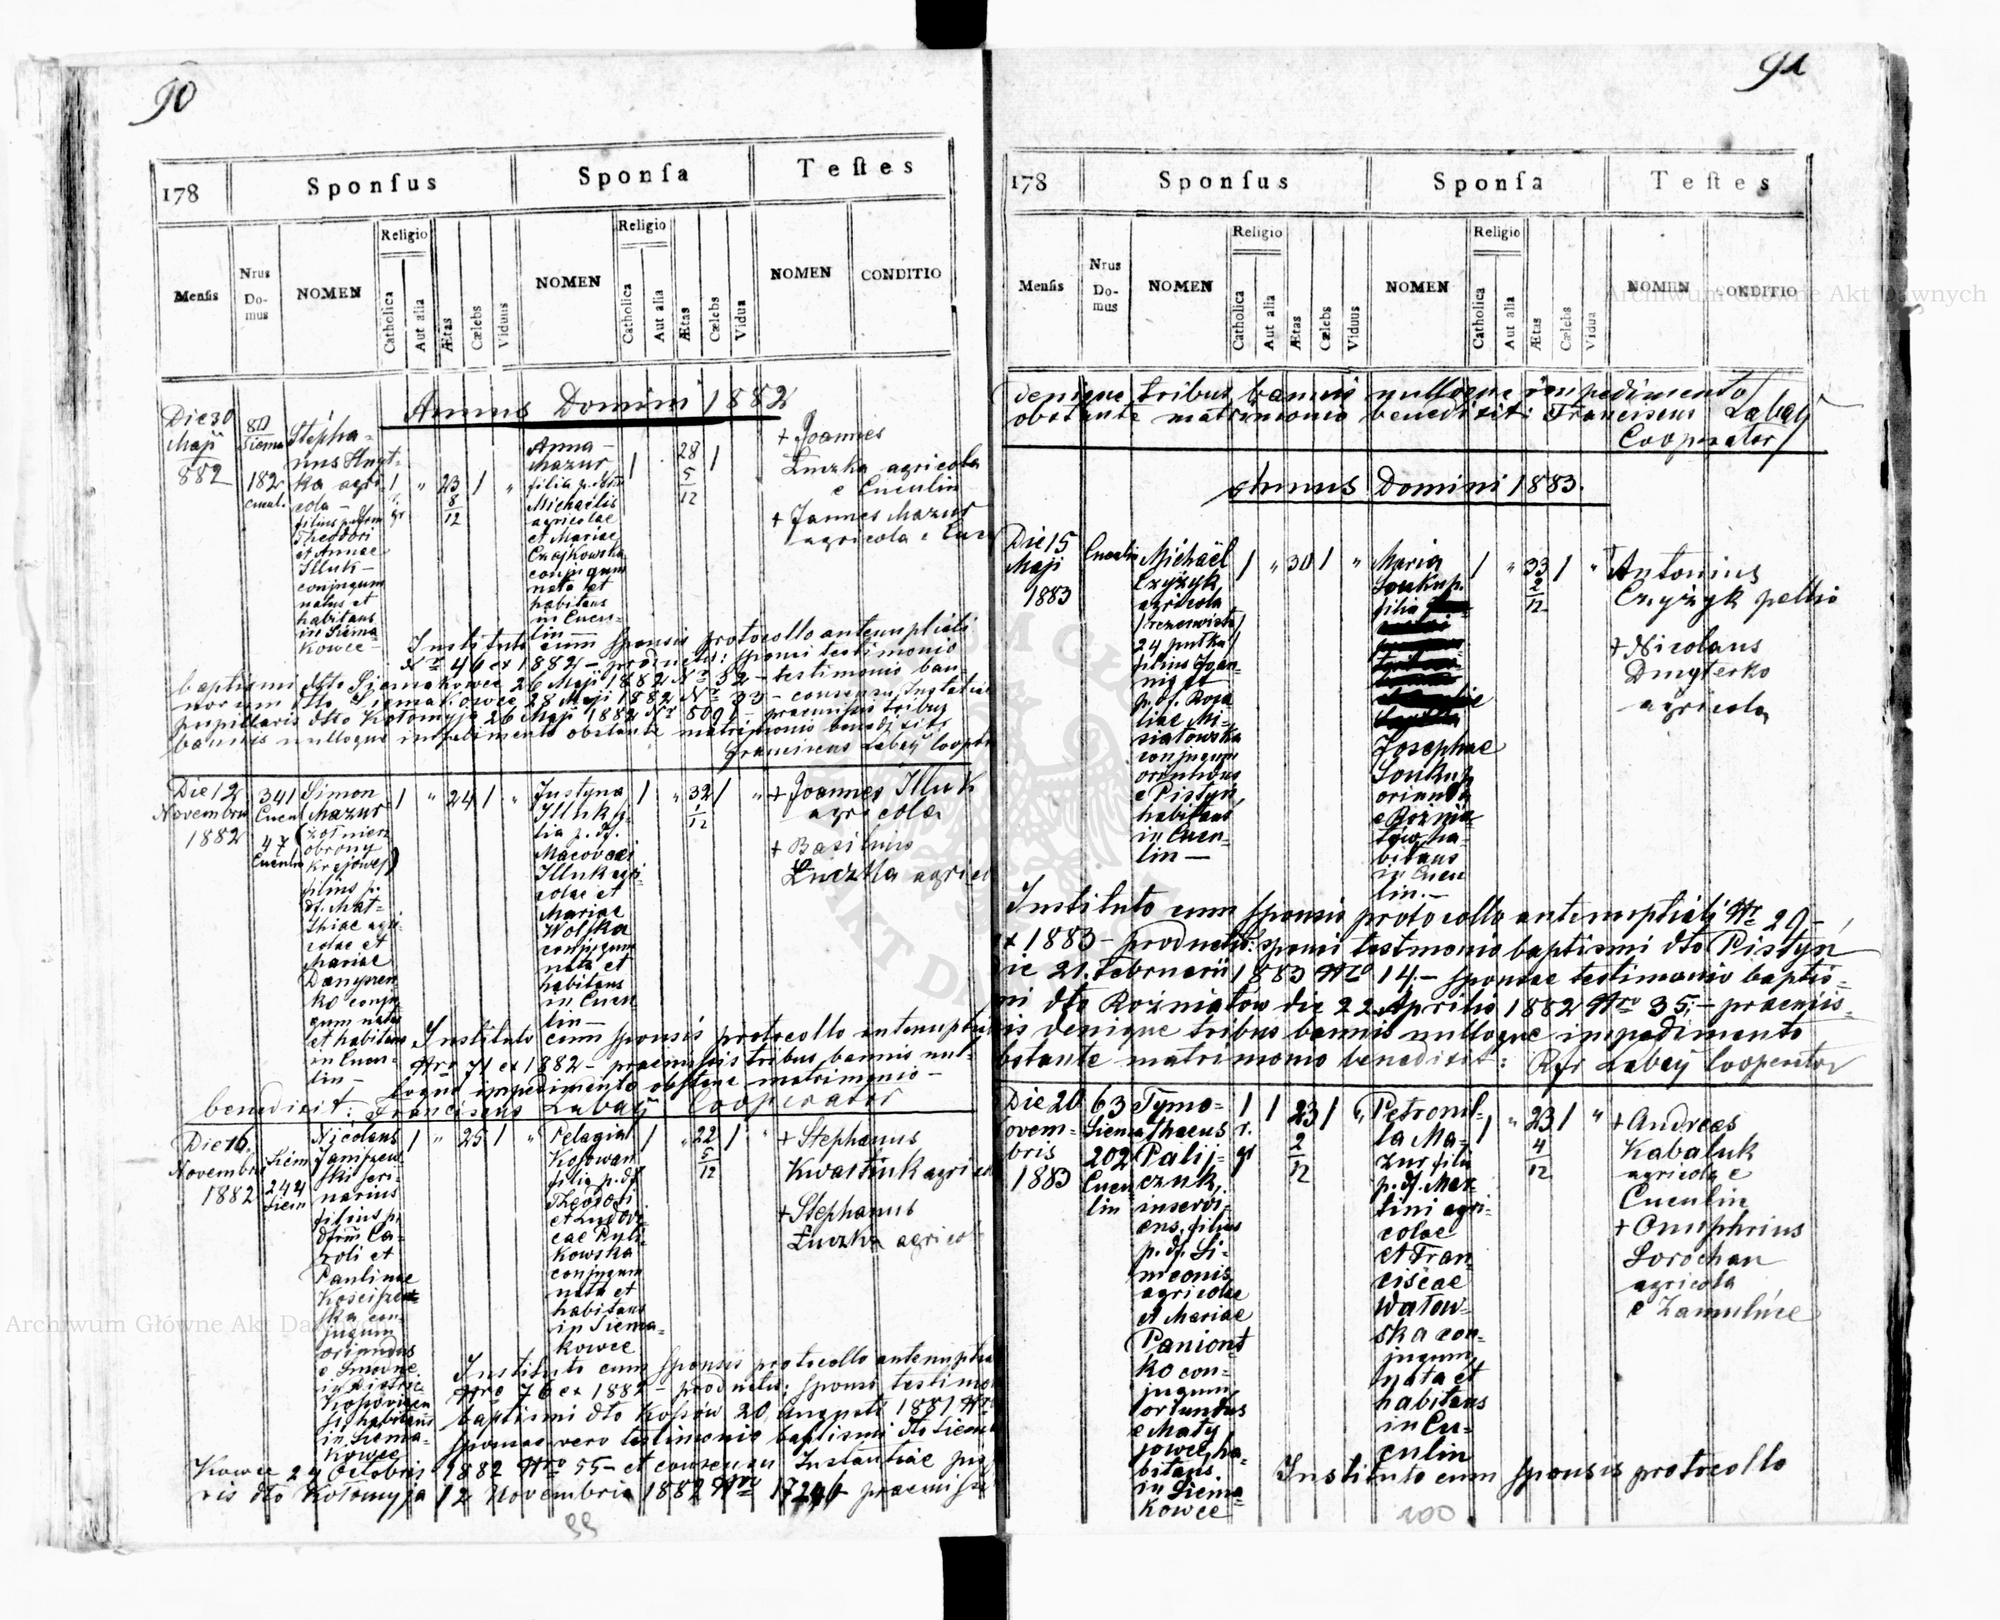 90
178
Sponſus
Sponſa
Teſtes
Menſis
Nrus Domus
NOMEN
Religio
Catholica
Aut alia
Ætas
Cælebs
Viduus
NOMEN
Religio
Catholica
Aut alia
Ætas
Cælebs
Vidua
NOMEN
CONDITIO
Annus Domini 1882
Die 30
Maji
882
80
Siema
182
Cucul.
Stepha-
nus
agri-
cola -
filius
Theodori
et Annae
Illuk -
conjugum
natus et
habitans
in Siema
kowce -
1
r.
gr
"
23
8
12
1
"
Anna -
Mazur
filia p.
Michaelis
agricolae
et Mariae
Czajkowska
conjugum
nata et
habitans
in Cucu-
lin -
1
28
5
12
1
+ Joannes
Łuczka agricola
e Cuculin
+ Joannes Mazur
agricola e Cuc
Instituto cum sponsis protocollo antenuptiali
Nro 46 ex 1882 - productis: sponsi testimonio
baptismi dto Siemakowce 26 Maji 1882 Nro 52 - testimonio ban-
norum dto Siemakowce 28 Maji 1882 Nro 33 - consensu Instatiae
pupillaris dto Kołomyja 26 Maji 1882 Nr 509 - praemissis tribus
bannis nulloque impedimento obstante matrimonio benedixit:
Franciscus Łabay Coope
Die 12
Novembris
1882
341
Cucu
47
Cuculin
Simon
Mazur
(żołnierz
obrony
krajowej)
filius p.
df. Mat-
thiae agri-
colae et
Mariae
conju
gum natus
et habitans
in Cucu-
lin -
1
"
24
1
"
Justyna
Illuk fi-
lia p. df.
Illuk agri-
colae et
Mariae
Wolska
conjugum
nata et
habitans
in Cucu
lin -
1
"
32
1
12
1
"
+ Joannes Illuk
agricola
+ Basilius
Łuczka agricol
Instituto cum sponsis protocollo antenuptia
Nro 71 ex 1882 - praemissis tribus bannis nul-
loque impedimento obstante matrimonio -
benedixit: Franciscus Łabay Cooperator
Die 16
Novembris
1882
Siem
244
Siem
Nicolaus
filius p.
Ca-
roli et
Paulinae
con-
jugum
oriundus
habitans
in Siema-
kowce
1
"
25
1
"
Pelagia
filia p. df
Theodori
et Ludovi-
cae
kowska
conjugum
nata et
habitans
in Siema-
kowce
1
"
22
5
12
1
"
+ Stephanus
Kwastiuk agricol
+ Stephanus
Łuczka agricol
Instituto cum sponsis protocollo antenuptia
Nro 76 ex 1882 - productis: sponsi testimo
baptismi dto Kossów 20 Augusti 1881 Nro
sponsae vero testimonio baptismi dto Siema
kowce 24 Octobris 1882 Nro 55 - et consensu Instantiae pupi
ris dto Kołomyja 12 Novembris 1882 Nro praemissi
99
91
178
Sponſus
Sponſa
Teſtes
Menſis
Nrus Domus
NOMEN
Religio
Catholica
Aut alia
Ætas
Cælebs
Viduus
NOMEN
Religio
Catholica
Aut alia
Ætas
Cælebs
Vidua
NOMEN
CONDITIO
denique tribus bannis nulloque impedimento
obstante matrimonio benedixit: Franciscus Łabay
Cooperator
Annus Domini 1883.
Die 15
Maji
1883
Cuculin
Michaël
Czyżyk
agricola
(rezerwista
24 pułku)
filius Joan-
nis et
p. df. Rosa
liae Mi-
siatowska
conjugum
oriundus
e Pistyn
habitans
in Cucu-
lin -
1
"
30
1
"
Maria
Soukup
filia
Josephae
Soukup
oriunda
e Rożnia-
tów ha-
bitans
in Cucu
lin. -
1
"
33
2
12
1
"
Antonius
Czyżyk pellio
+ Nicolaus
Dmyterko
agricola
Instituto cum sponsis protocollo antenuptiali Nr 20 -
ex 1883 - productis: sponsi testmonio baptismi dto Pistyn
die 21. Februarii 1883 Nro 14. - sponsae testimonio baptis-
mi dto Rożniatów die 22 Aprilis 1882 Nro 35. - praemis-
is denique tribus bannis nulloque impedimento
bstante matrimonio benedixit: Łabay Cooperator
Die 20
ovem-
bris
1883
63
Siema
202
Cucu
lin
Tymo-
thaeus
Palij-
czuk,
inservi-
ens, filius
p. df. Si-
meonis
agricolae
et Mariae
Paniont
ko con-
jugum,
oriundus
e Maty
jowce, ha-
bitans
in Siema-
kowce
1
r.
gr
1
23
2
12
1
"
Petronel-
la Ma-
zur filia
p. df. Mar-
tini agri-
colae
et Fran-
ciscae
Watow-
ska con-
jugum,
nata et
habitans
in Cu-
culin
1
"
23
4
12
1
"
+ Andreas
Kabaluk
agricola e
Cuculin
+ Onuphrius
Sorochan
agricola
e Zamulińce
Instituto cum sponsis protocollo
100
Archiwum Główne Akt Dawnych
Archiwum Główne Akt Dawnych